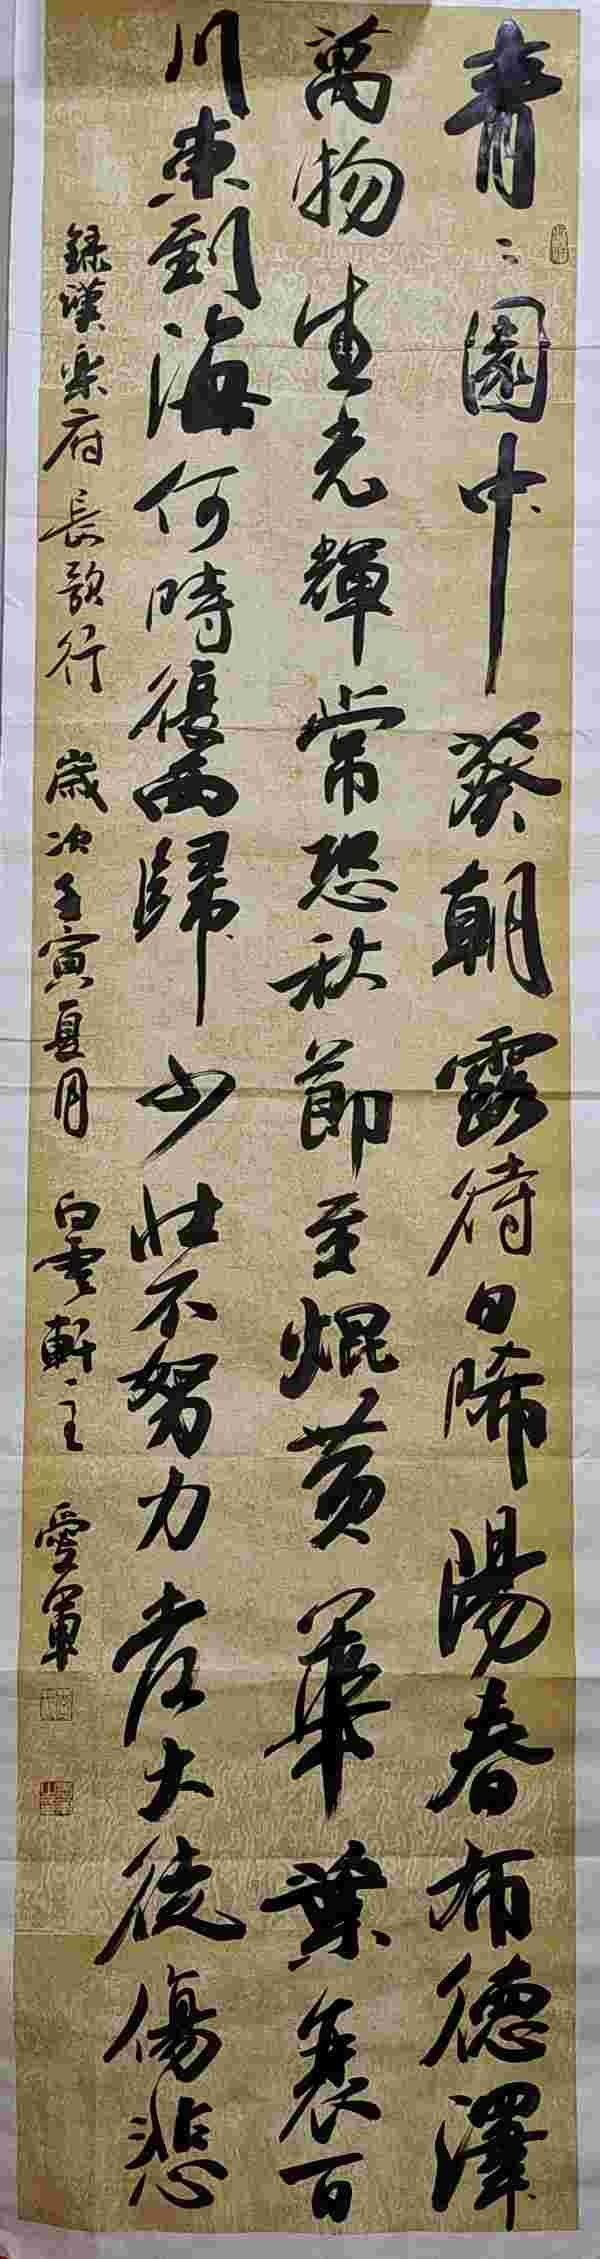 青〻園中葵朝露待日晞陽春布德澤
萬物生光輝常恐秋節至焜黄華葉衰百
川東到海何時復西歸少壯不努力老大徒傷悲
録漢樂府長歌行 歲次壬寅夏月 白雲軒主 愛軍